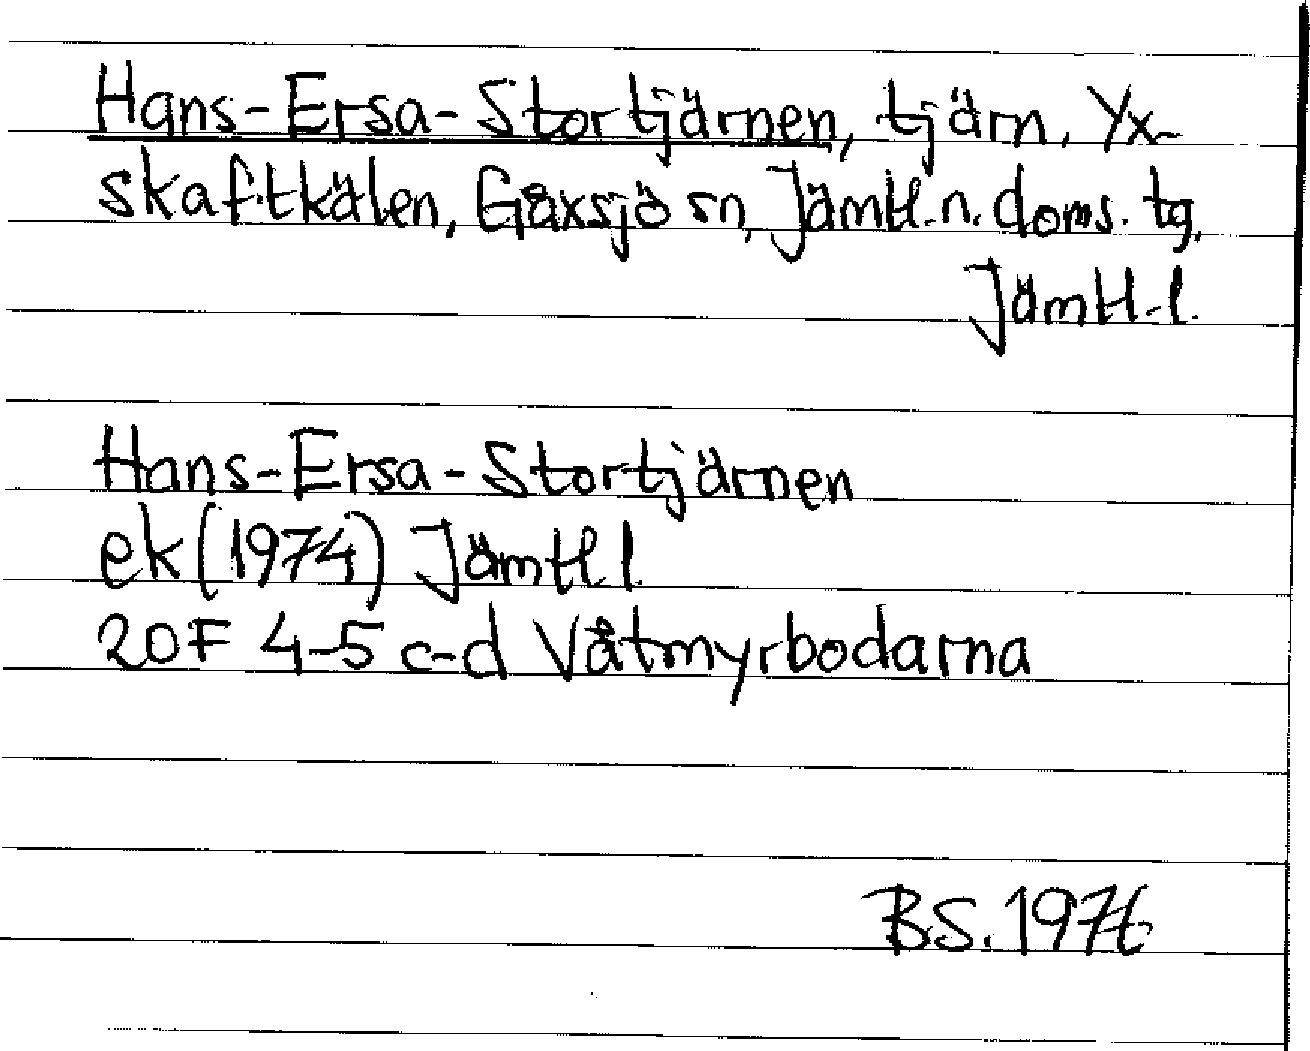 Hans-Ersa-Stortjärnen, tjärn, Yx-
skaftkälen, Gåxsjö sn, Jämtl.n. doms. tg.
Jämtl.l.
Hans-Ersa-Stortjärnen
ek (1974) Jämtl l
20F 4-5 c-d Våtmyrbodarna
BS. 1976